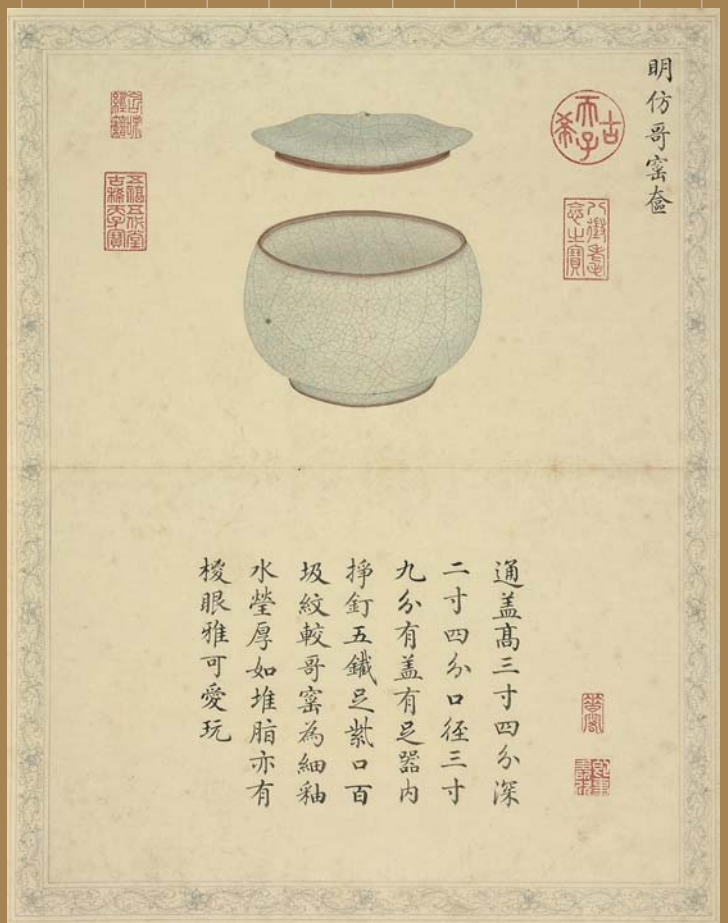 明仿哥窯奩
古希天子
八徵耄念之寶
五福五代堂古稀天子寶
通盖髙三寸四分深
二寸四分口径三寸
九分有盖有足器内
掙釘五鐵足紫口百
圾紋較哥窯為細釉
水瑩厚如堆脂亦有
椶眼雅可愛玩